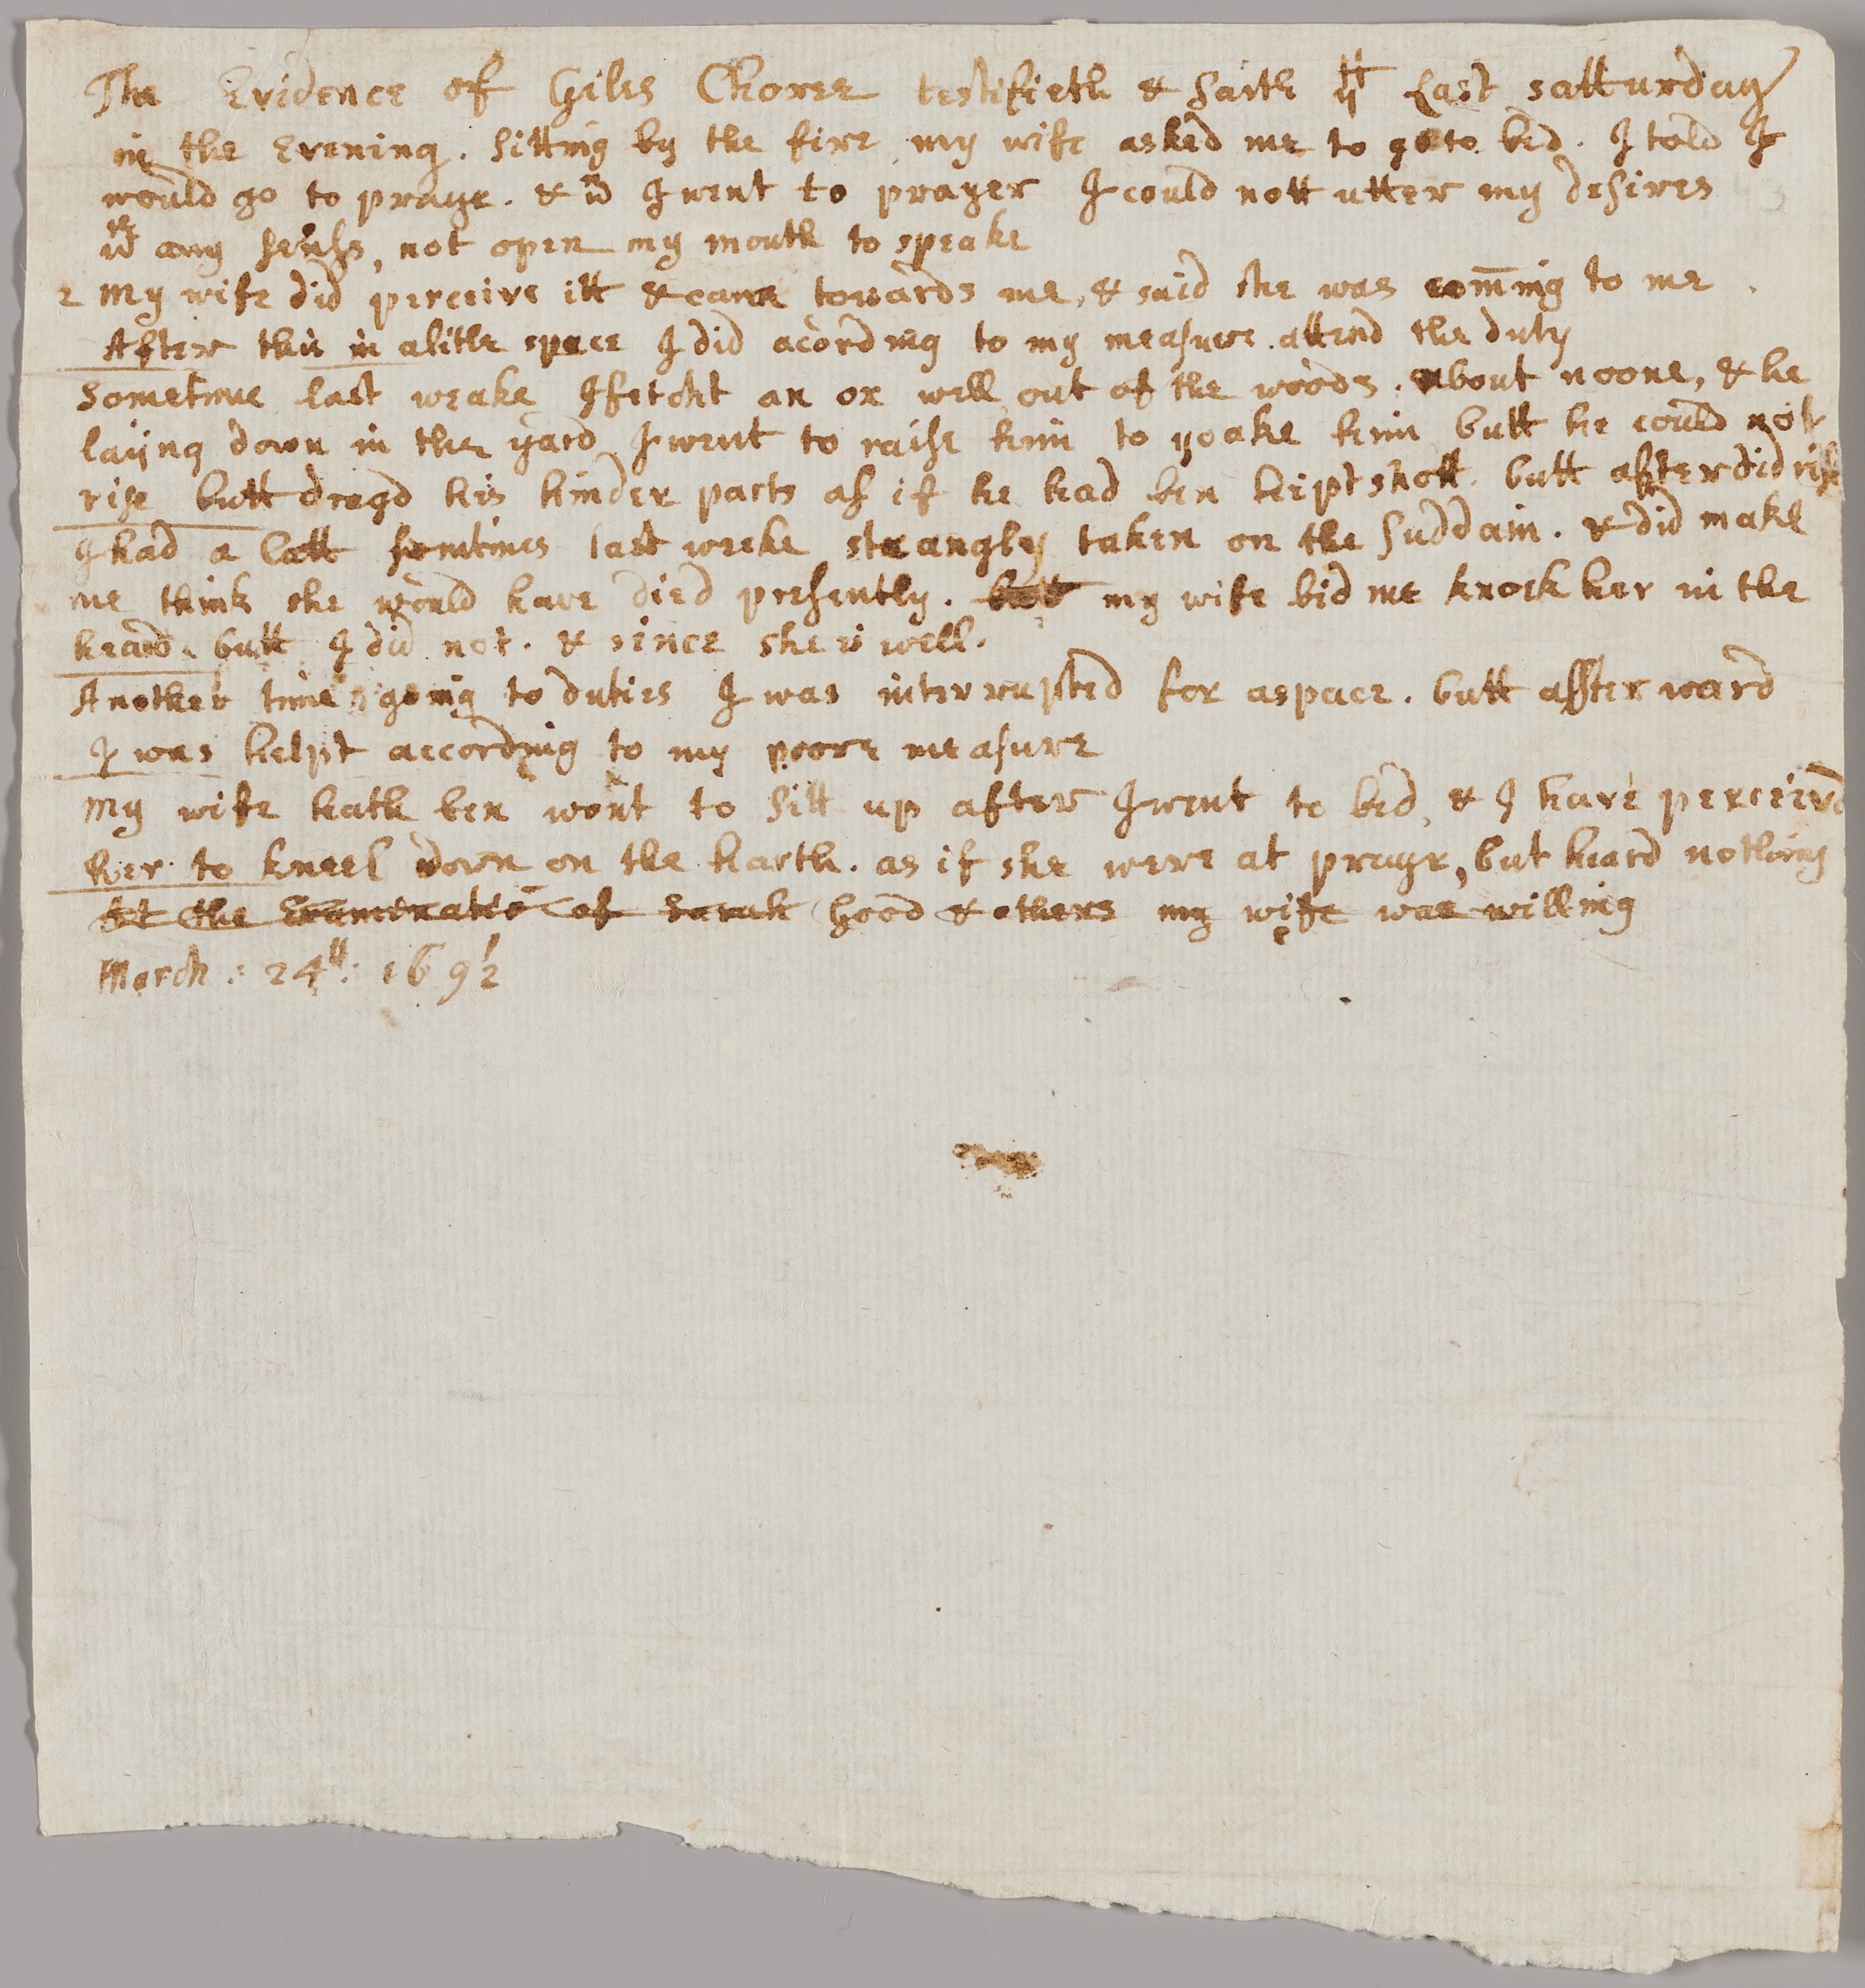 The Evidence of Giles Choree testifieth & saith yt Last satturday
in the Evening. sitting by the fire my wife asked me to go to bed. I told I
would go to praye. & wn I went to prayer I could nott utter my desires
wth any sense, not open my mouth to speake
2 My wife did perceive itt & came towards me, & said she was coming to me
After this in a litle space I did acording to my measure attend the duty
Sometime last weake I fetcht an ox well out of the woods. about noone, & he
laying down in the yard I went to raise him to yoake him butt he could not
rise butt dragd his hinder parts as if he had ben hiptshott. butt after did rise
I had a Catt somtimes last weeke strangly taken on the suddain. & did make
me think she would have died presently. butt my wife bid me knock her in the
head. butt I did not. & since she is well.
Another time going to duties I was interrupted for a space. butt affterward
I was helpt according to my poore measure
My wife hath ben wont to sitt up after I went to bed, & I have perceived
her to kneel down on the harth. as if she were at praye, but heard nothing
At the Examination of Sarah Good & others my wife was willing
March: 24th: 169½